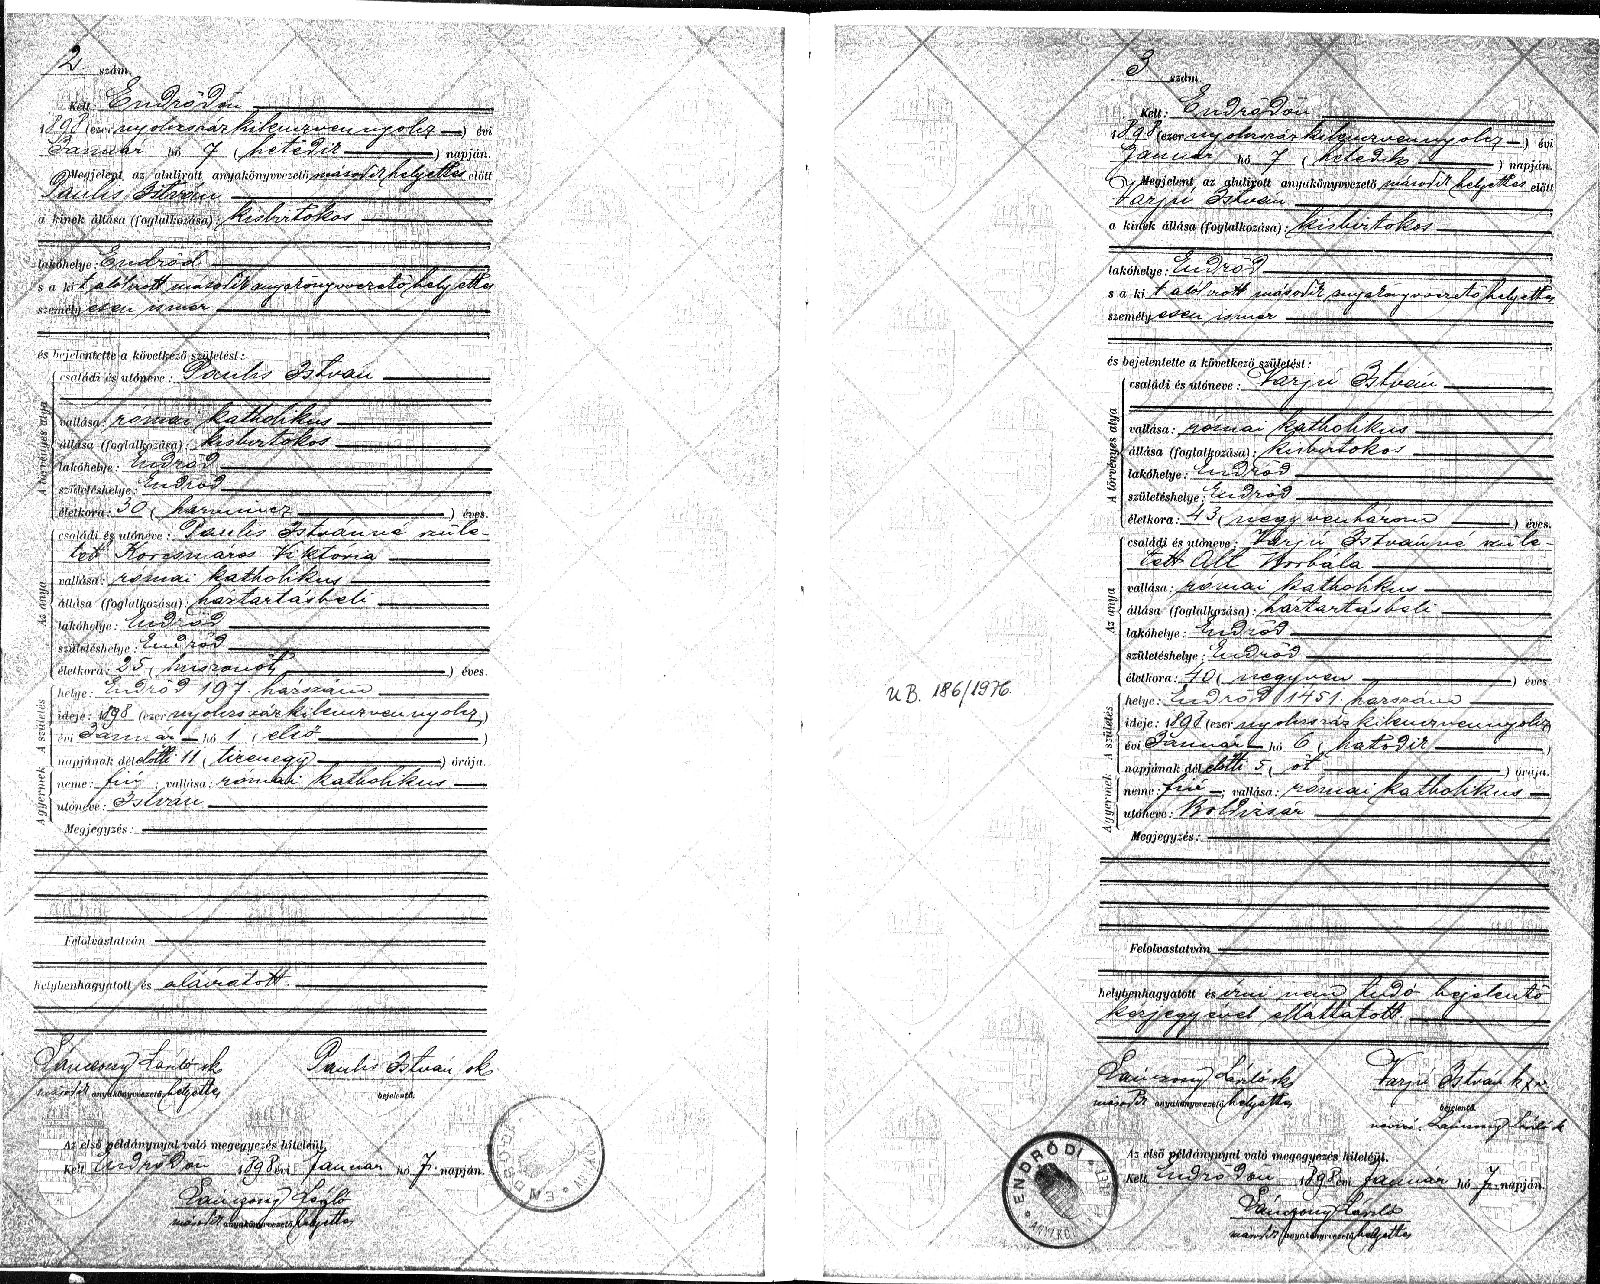 2 szám.
Kelt Endrődön
1898 (ezer nyolcszázkilenczvennyolcz) évi
Január hó 7 (hetedik) napján.
Megjelent az alulirott anyakönyvvezető második helyettes előtt
Paulis István
a kinek állása (foglalkozása): kisbirtokos
lakóhelye: Endrőd
s a kit alólirott második anyakönyvvezető helyettes
személyesen ismer
és bejelentette a következő születést:
A törvényes atya
családi és utóneve: Paulis István
vallása: római katholikus
állása (foglalkozása): kisbirtokos
lakóhelye: Endrőd
születéshelye: Endrőd
életkora: 30 (harmincz) éves.
Az anya
családi és utóneve: Paulis Istvánné szüle-
tett Korcsmáros Viktória
vallása: római katholikus
állása (foglalkozása): háztartásbeli
lakóhelye: Endrőd
születéshelye: Endrőd
életkora: 25 (huszonöt) éves.
A születés
helye: Endrőd 197. házszám
ideje: 1898 (ezer nyolcszázkilenczvennyolcz)
évi Január hó 1 (első)
napjának délelőtti 11 (tizenegy) órája.
A gyermek
neme: fiú; vallása: római katholikus
utóneve: István
Megjegyzés:
Felolvastatván
helybenhagyatott és aláiratott.
Lánczony László sk Paulis István sk
második anyakönyvvezető helyettes bejelentő.
Az első példánynyal való megegyezés hiteléül.
Kelt Endrődön 1898 évi Január hó 7. napján.
Lánczony László
második anyakönyvvezető helyettes
U.B. 186/1976.
3 szám.
Kelt: Endrődön
1898 (ezer nyolcszázkilenczvennyolcz) évi
Január hó 7 (hetedik) napján.
Megjelent az alulirott anyakönyvvezető második helyettes előtt
Varjú István
a kinek állása (foglalkozása): kisbirtokos
lakóhelye: Endrőd
s a kit alólirott második anyakönyvvezető helyettes
személyesen ismer
és bejelentette a következő születést:
A törvényes atya
családi és utóneve: Varjú István
vallása: római katholikus
állása (foglalkozása): kisbirtokos
lakóhelye: Endrőd
születéshelye: Endrőd
életkora: 43 (negyvenhárom) éves.
Az anya
családi és utóneve: Varjú Istvánné szüle-
tett Alt Borbála
vallása: római katholikus
állása (foglalkozása): háztartásbeli
lakóhelye: Endrőd
születéshelye: Endrőd
életkora: 40 (negyven) éves
A születés
helye: Endrőd 1451 házszám
ideje: 1898 (ezer nyolcszázkilenczvennyolcz)
évi Január hó 6 (hatodik)
napjának délelőtti 5 (öt) órája.
A gyermek
neme: fiú; vallása: római katholikus
utóneve: Boldizsár
Megjegyzés:
Felolvastatván
helybenhagyatott és irni nem tudó bejelentő
kézjegyével elláttatott.
Lánczony László sk Varjú István
második anyakönyvvezető helyettes bejelentő.
Lánczony László sk
Az első példánynyal való megegyezés hiteléül.
Kelt Endrődön 1898 évi Január hó 7. napján.
Lánczony László
második anyakönyvvezető helyettes
ENDRŐDI